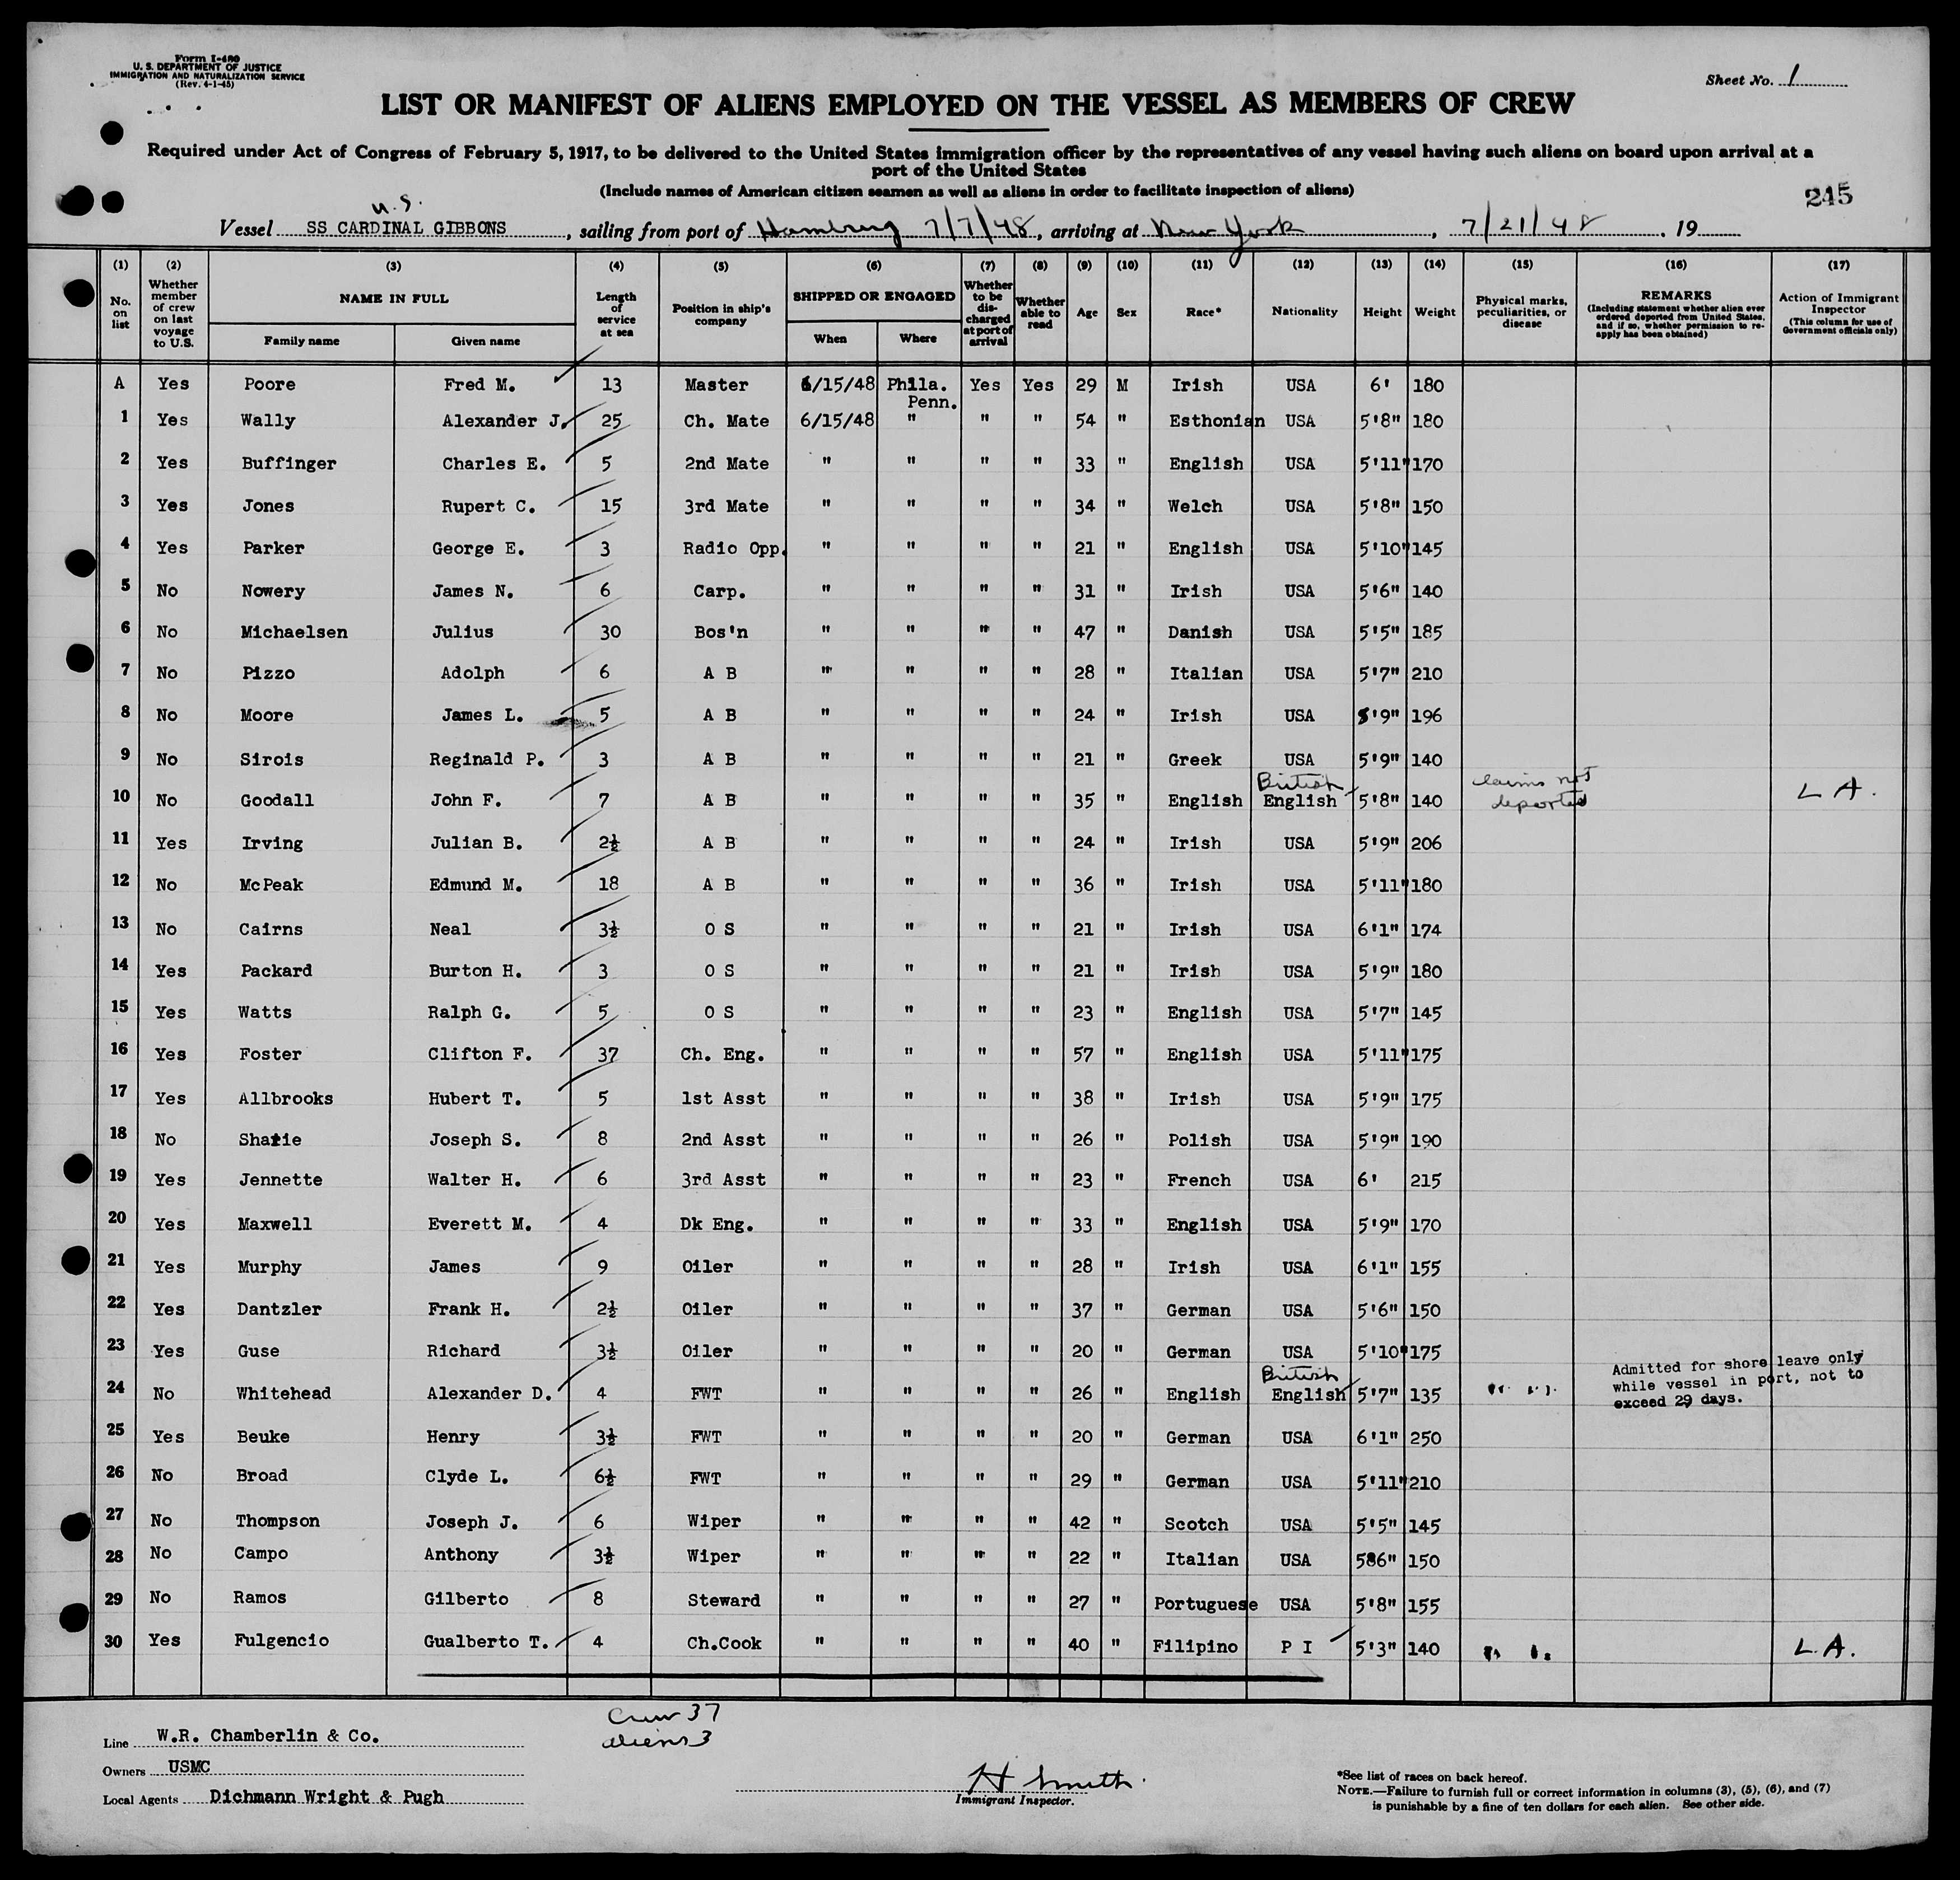 Form I-480
U. S. DEPARTMENT OF JUSTICE
IMMIGRATION AND NATURALIZATION SERVICE
(Rev. 4-1-45)
Sheet No. 1
LIST OR MANIFEST OF ALIENS EMPLOYED ON THE VESSEL AS MEMBERS OF CREW
Required under Act of Congress of February 5, 1917, to be delivered to the United States immigration officer by the representatives of any vessel having such aliens on board upon arrival at a
port of the United States
(Include names of American citizen seamen as well as aliens in order to facilitate inspection of aliens)
245
U.S.
Vessel SS CARDINAL GIBBONS, sailing from port of Hamburg 7/7/48, arriving at New York, 7/21/48, 19
(1) No. on list (2) Whether member of crew on last voyage to U.S. (3) NAME IN FULL Family name Given name (4) Length of service at sea (5) Position in ship's company (6) SHIPPED OR ENGAGED When Where (7) Whether to be discharged at port of arrival (8) Whether able to read (9) Age (10) Sex (11) Race* (12) Nationality (13) Height (14) Weight (15) Physical marks, peculiarities, or disease (16) REMARKS (Including statement whether alien ever ordered deported from United States, and if so, whether permission to re-apply has been obtained) (17) Action of Immigrant Inspector (This column for use of Government officials only)
A Yes Poore Fred M. 13 Master 6/15/48 Phila. Penn. Yes Yes 29 M Irish USA 6' 180
1 Yes Wally Alexander J. 25 Ch. Mate 6/15/48 " " " 54 " Esthonian USA 5'8" 180
2 Yes Buffinger Charles E. 5 2nd Mate " " " " 33 " English USA 5'11" 170
3 Yes Jones Rupert C. 15 3rd Mate " " " " 34 " Welch USA 5'8" 150
4 Yes Parker George E. 3 Radio Opp. " " " " 21 " English USA 5'10" 145
5 No Nowery James N. 6 Carp. " " " " 31 " Irish USA 5'6" 140
6 No Michaelsen Julius 30 Bos'n " " " " 47 " Danish USA 5'5" 185
7 No Pizzo Adolph 6 A B " " " " 28 " Italian USA 5'7" 210
8 No Moore James L. 5 A B " " " " 24 " Irish USA 5'9" 196
9 No Sirois Reginald P. 3 A B " " " " 21 " Greek USA 5'9" 140
10 No Goodall John F. 7 A B " " " " 35 " English British English 5'8" 140 claims not deported L A.
11 Yes Irving Julian B. 2½ A B " " " " 24 " Irish USA 5'9" 206
12 No McPeak Edmund M. 18 A B " " " " 36 " Irish USA 5'11" 180
13 No Cairns Neal 3½ O S " " " " 21 " Irish USA 6'1" 174
14 Yes Packard Burton H. 3 O S " " " " 21 " Irish USA 5'9" 180
15 Yes Watts Ralph G. 5 O S " " " " 23 " English USA 5'7" 145
16 Yes Foster Clifton F. 37 Ch. Eng. " " " " 57 " English USA 5'11" 175
17 Yes Allbrooks Hubert T. 5 1st Asst " " " " 38 " Irish USA 5'9" 175
18 No Joseph S. 8 2nd Asst " " " " 26 " Polish USA 5'9" 190
19 Yes Jennette Walter H. 6 3rd Asst " " " " 23 " French USA 6' 215
20 Yes Maxwell Everett M. 4 Dk Eng. " " " " 33 " English USA 5'9" 170
21 Yes Murphy James 9 Oiler " " " " 28 " Irish USA 6'1" 155
22 Yes Dantzler Frank H. 2½ Oiler " " " " 37 " German USA 5'6" 150
23 Yes Guse Richard 3½ Oiler " " " " 20 " German USA 5'10" 175
24 No Whitehead Alexander D. 4 FWT " " " " 26 " English British English 5'7" 135 " " Admitted for shore leave only while vessel in port, not to exceed 29 days.
25 Yes Beuke Henry 3½ FWT " " " " 20 " German USA 6'1" 250
26 No Broad Clyde L. 6½ FWT " " " " 29 " German USA 5'11" 210
27 No Thompson Joseph J. 6 Wiper " " " " 42 " Scotch USA 5'5" 145
28 No Campo Anthony 3½ Wiper " " " " 22 " Italian USA 586" 150
29 No Ramos Gilberto 8 Steward " " " " 27 " Portuguese USA 5'8" 155
30 Yes Fulgencio Gualberto T. 4 Ch.Cook " " " " 40 " Filipino P I 5'3" 140 " " L.A.
Crew 37
aliens 3
Line W.R. Chamberlin & Co.
Owners USMC
Local Agents Dichmann Wright & Pugh
H Smith
Immigrant Inspector.
*See list of races on back hereof.
NOTE.—Failure to furnish full or correct information in columns (3), (5), (6), and (7)
is punishable by a fine of ten dollars for each alien. See other side.